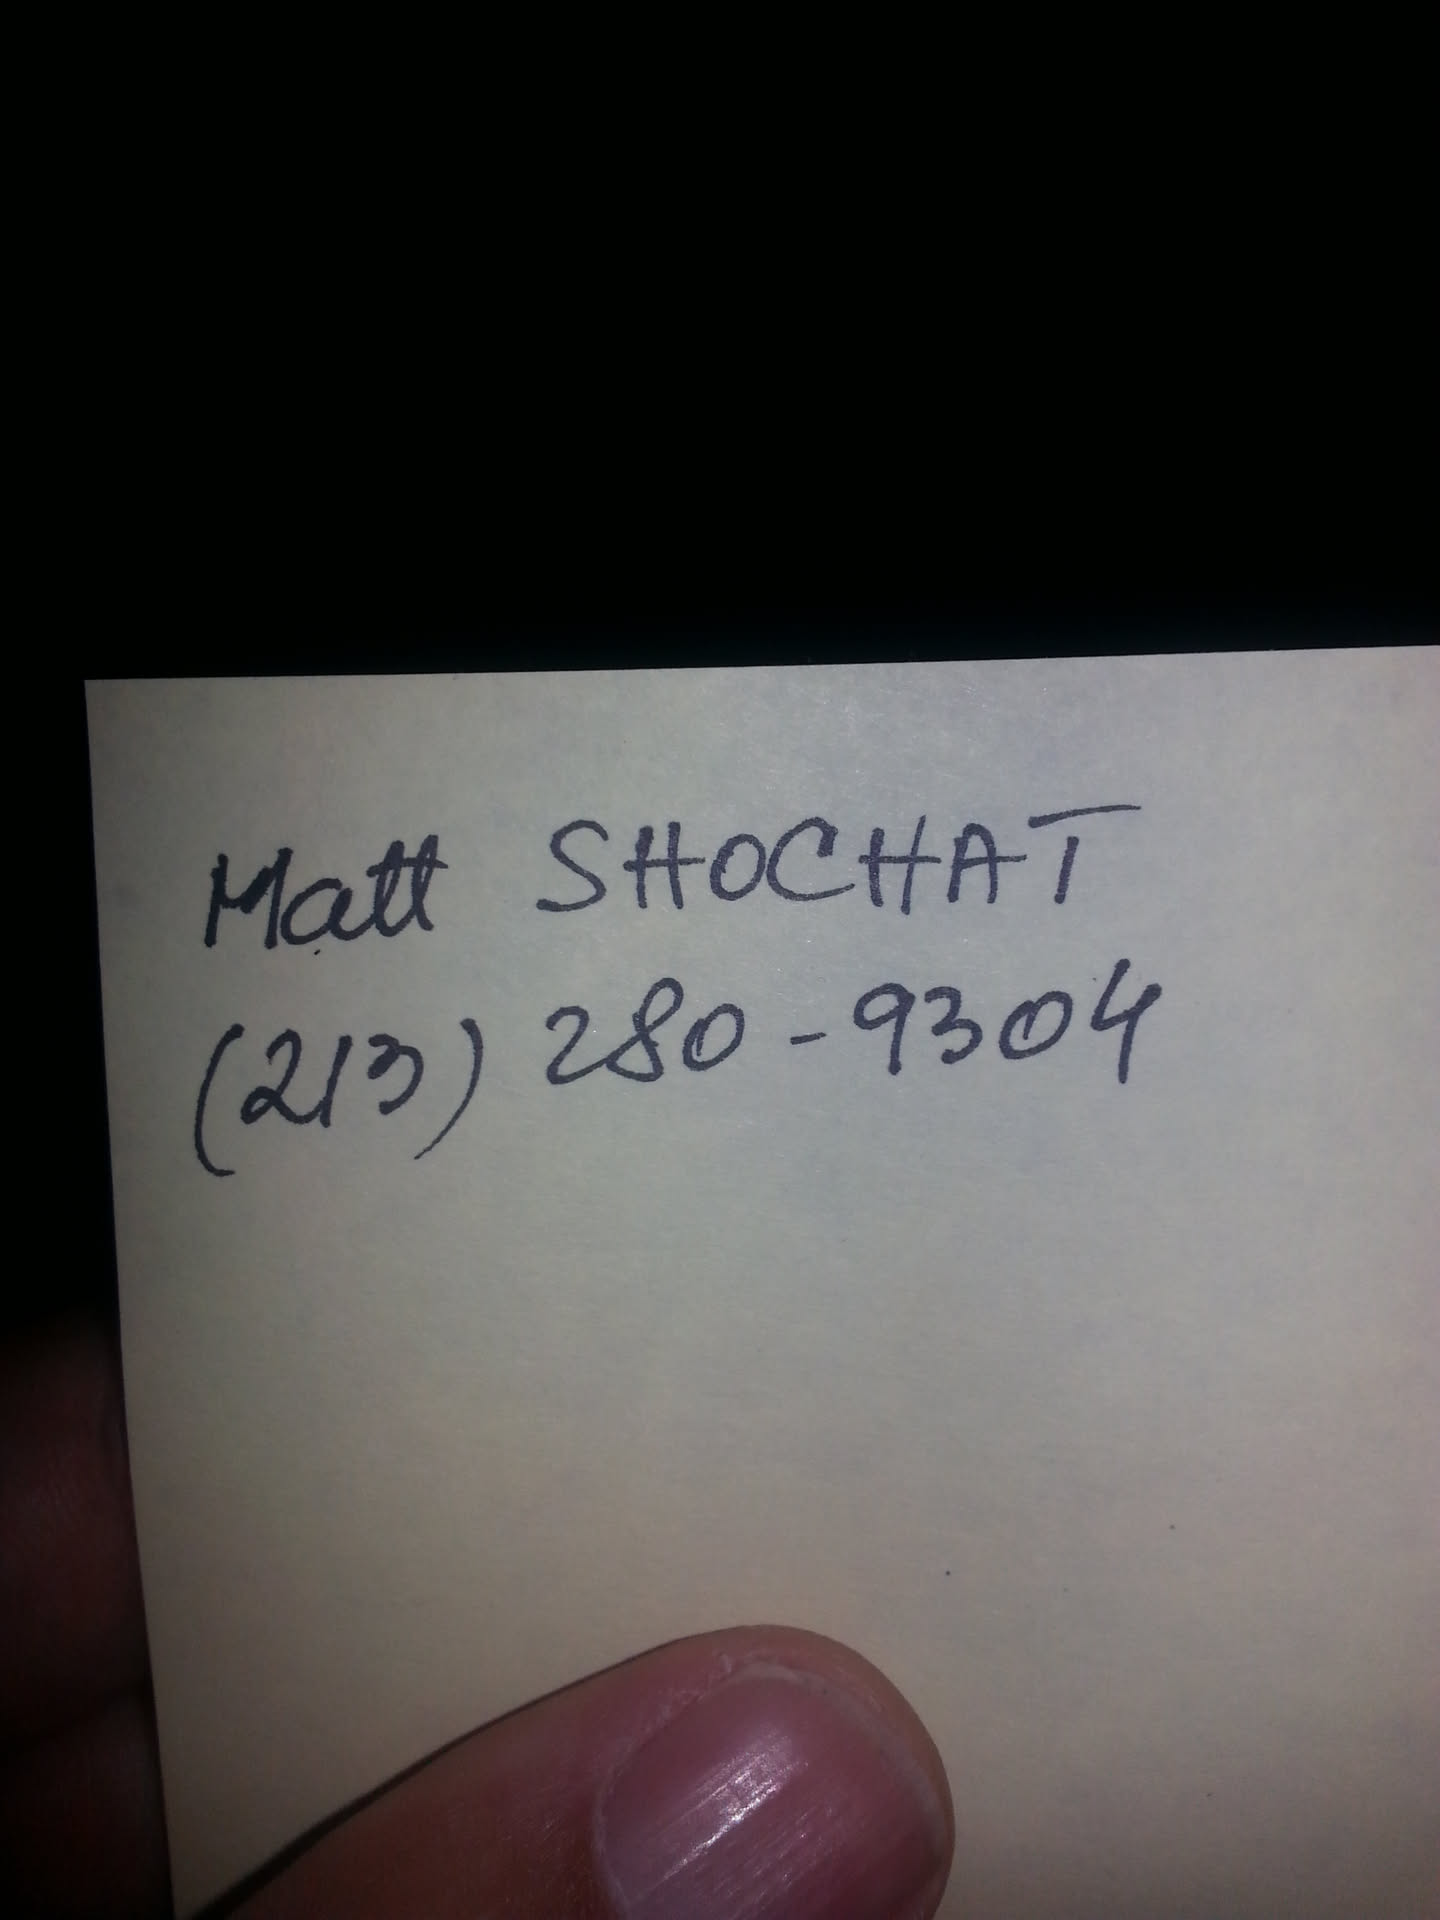 Matt SHOCHAT
(213) 280-9304